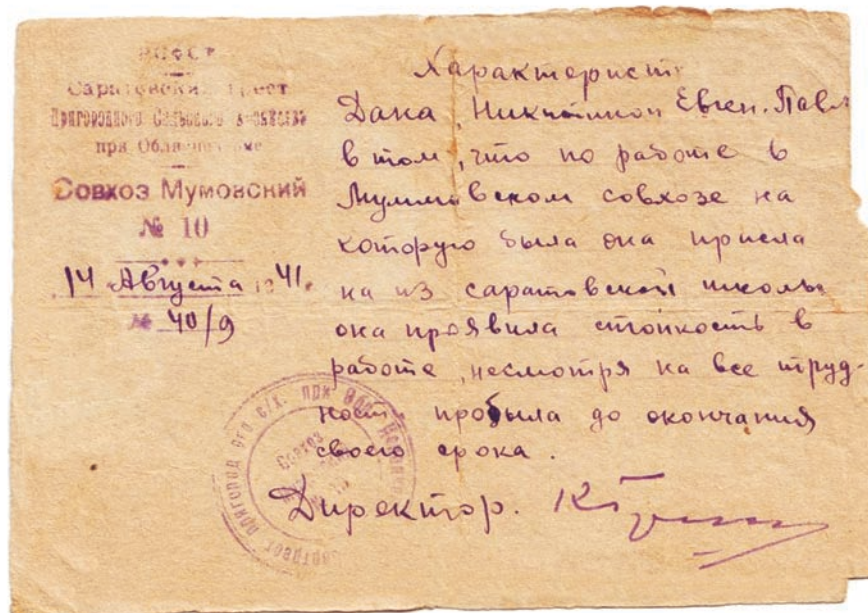 РСФСР
Саратовский трест
Пригородного Сельского хозяйства
при Облисполкоме
Совхоз Мумовский
№ 10
14 Августа 1941г.
№ 40/9
Характерист
Дана, Никитиной Евген. Павл
в том, что по работе в
Муммовском совхозе на
которую была она присла
на из саратовской школы
она проявила стойкость в
работе, несмотря на все труд-
ност пробыла до окончания
своего срока.
Директор.
Совхоз